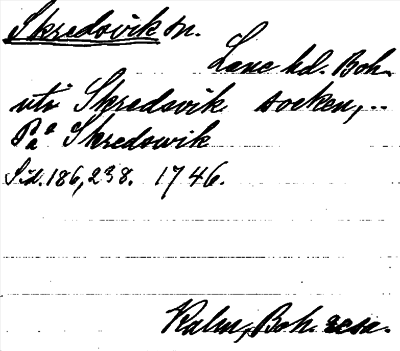 Skredsvik sn.
Lane hd. Boh.
uti Skredsvik socken, ..
På Skredswik
Sid. 186, 238. 1746.
Kalm, Boh. resa.